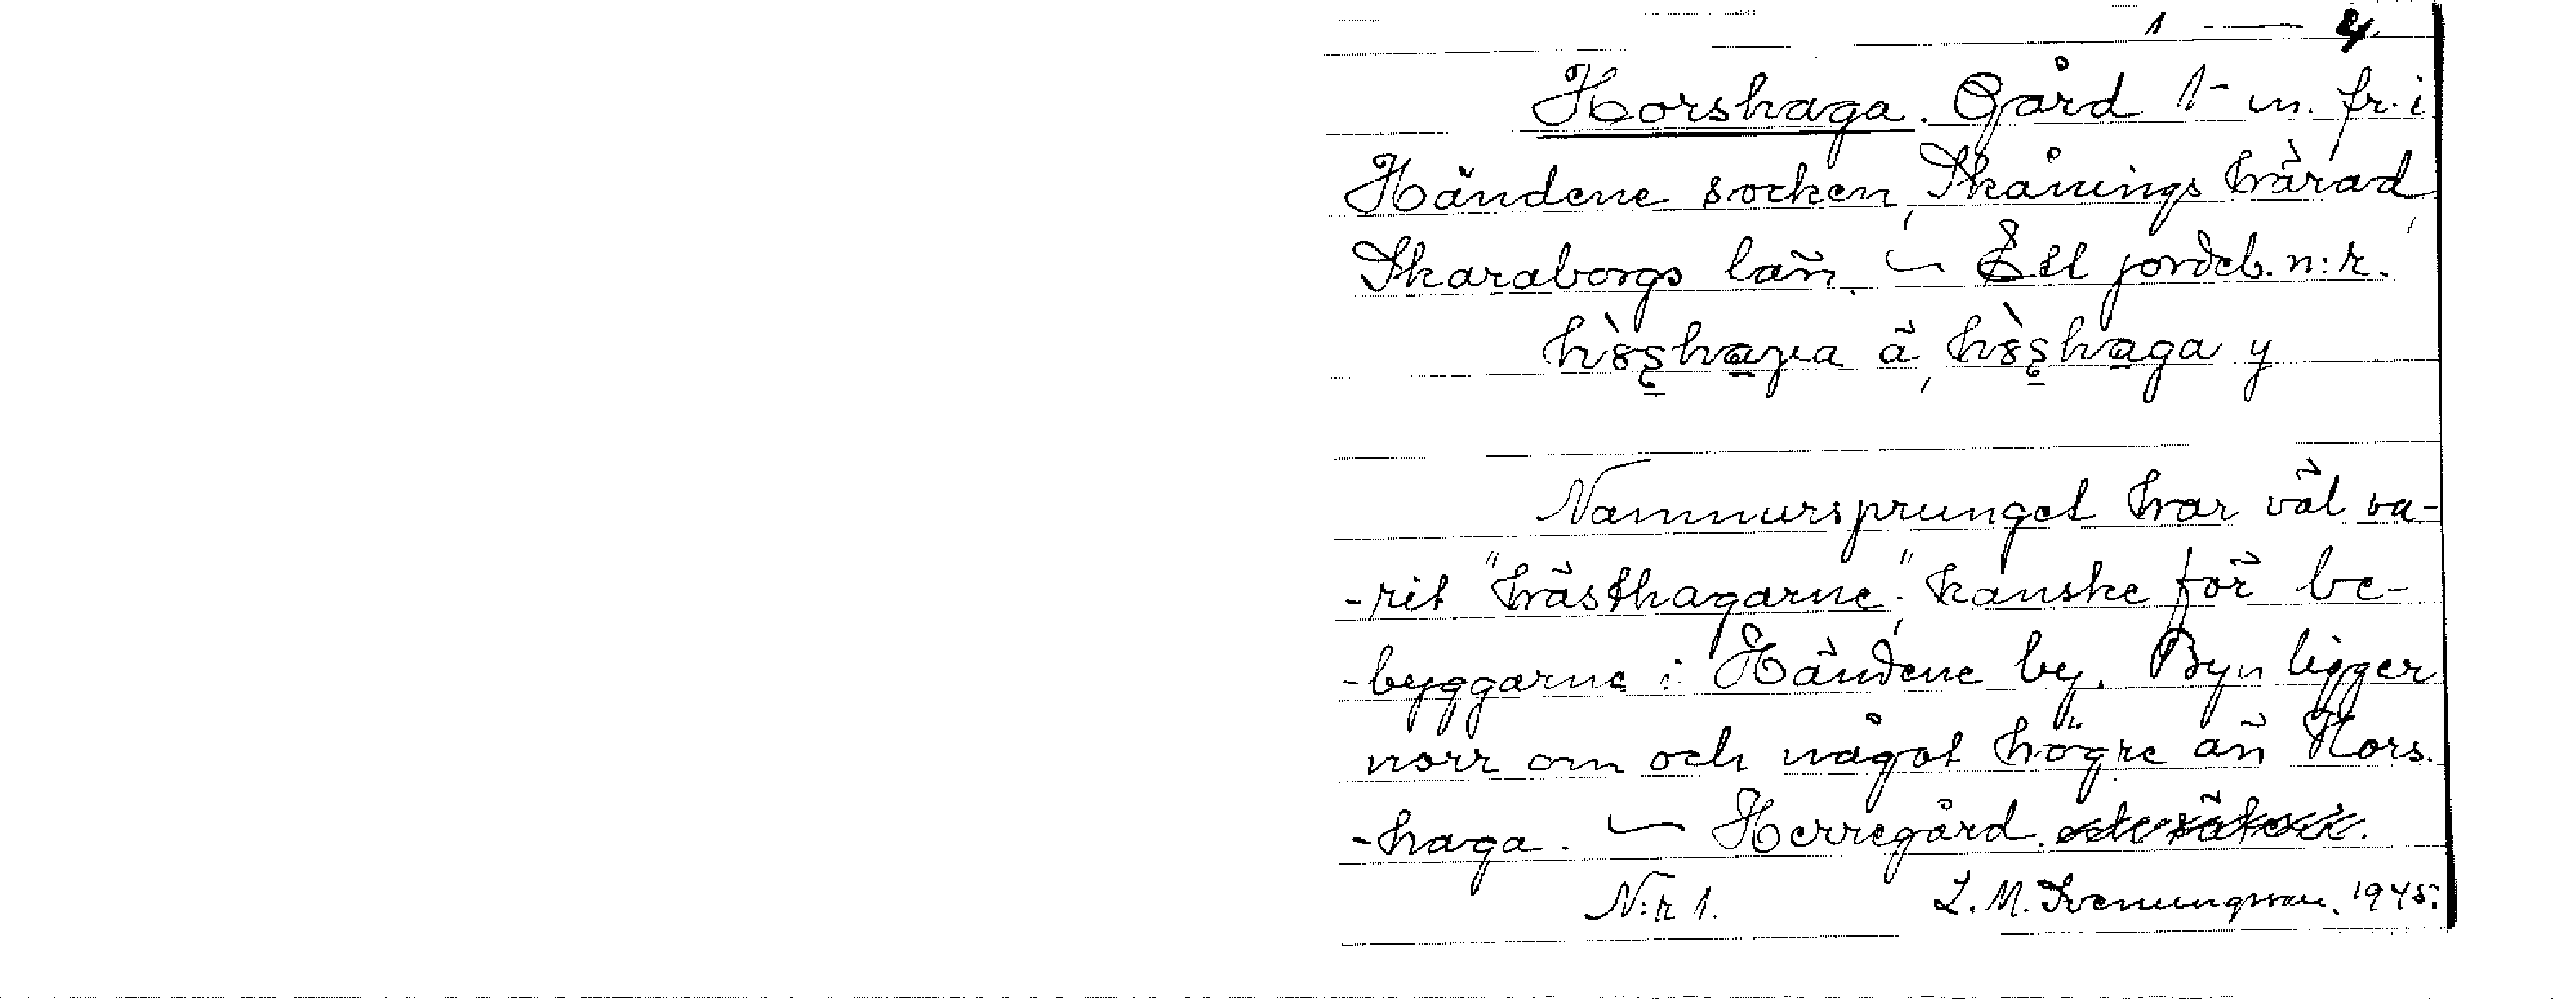 1 — 4
Horshaga. Gård 1- m. fr. i
Händene socken, Skånings härad,
Skaraborgs län. — Ett jordeb. n:r.
Namnursprunget har väl va-
-rit "hästhagarne", kanske för be-
-byggarne i Händene by. Byn ligger
norr om och något högre än Hors-
-haga. — Herregård.
N:r 1. L. M. Svenungsson. 1945.